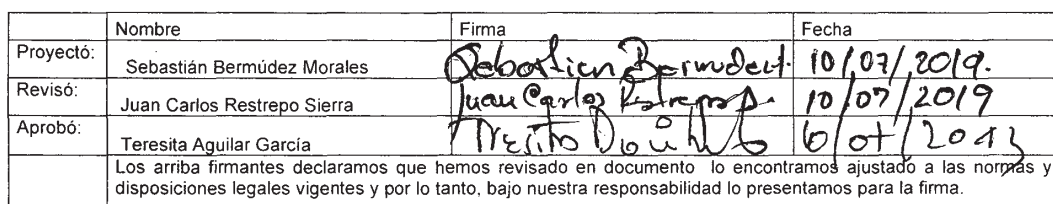 Nombre Firma Fecha
Proyectó: Sebastián Bermúdez Morales Sebastian Bermudez M. 10/07/2019.
Revisó: Juan Carlos Restrepo Sierra Juan Carlos Restrepo S. 10/07/2019
Aprobó: Teresita Aguilar García
Los arriba firmantes declaramos que hemos revisado en documento lo encontramos ajustado a las normas y
disposiciones legales vigentes y por lo tanto, bajo nuestra responsabilidad lo presentamos para la firma.